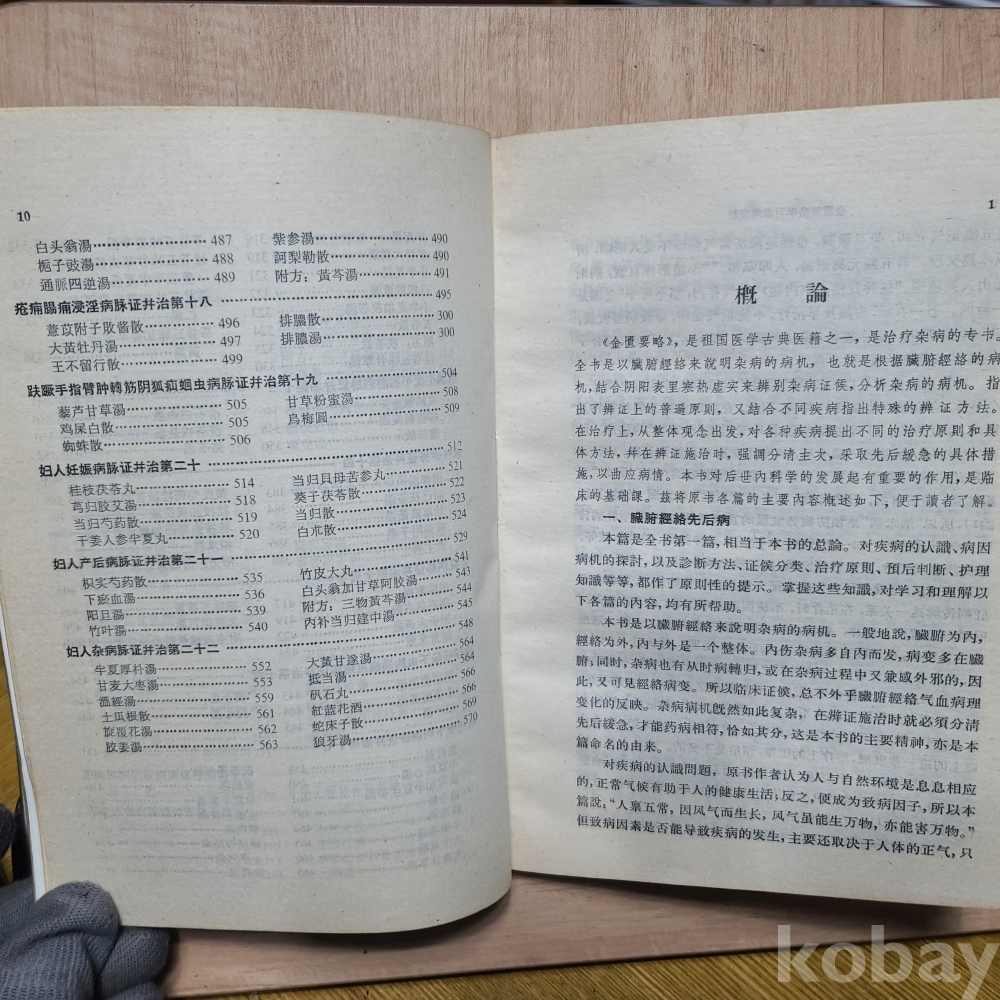 10
白头翁湯 487
梔子豉湯 488
通脈四逆湯 489
紫参湯 490
訶梨勒散 490
附方：黃芩湯 491
疮痈腸痈浸淫病脉证幷治第十八 495
薏苡附子敗酱散 496
大黃牡丹湯 497
王不留行散 499
排膿散 300
排膿湯 300
趺蹶手指臂肿轉筋阴狐疝蛔虫病脉证幷治第十九 504
藜芦甘草湯 505
鸡屎白散 505
蜘蛛散 506
甘草粉蜜湯 508
烏梅圓 509
妇人妊娠病脉证幷治第二十 512
桂枝茯苓丸 514
芎归胶艾湯 518
当归芍药散 519
干姜人参半夏丸 520
当归貝母苦参丸 521
葵子茯苓散 522
当归散 523
白朮散 524
妇人产后病脉证幷治第二十一 529
枳实芍药散 535
下瘀血湯 536
阳旦湯 539
竹叶湯 540
竹皮大丸 541
白头翁加甘草阿胶湯 543
附方：三物黃芩湯 544
内补当归建中湯 545
妇人杂病脉证幷治第二十二 548
半夏厚朴湯 552
甘麦大枣湯 553
溫經湯 559
土瓜根散 561
旋覆花湯 562
胶姜湯 563
大黃甘遂湯 564
抵当湯 564
矾石丸 566
紅藍花酒 566
蛇床子散 569
狼牙湯 570
1
概 論
《金匱要略》，是祖国医学古典医籍之一，是治疗杂病的专书。
全书是以臟腑經絡来說明杂病的病机，也就是根据臟腑經絡的病
机，結合阴阳表里寒热虛实来辨别杂病证侯，分析杂病的病机。指
出了辨证上的普遍原則，又結合不同疾病指出特殊的辨证方法。
在治疗上，从整体观念出发，对各种疾病提出不同的治疗原則和具
体方法，幷在辨证施治时，强調分清主次，采取先后緩急的具体措
施，以曲应病情。本书对后世內科学的发展起有重要的作用，是临
床的基础課。茲将原书各篇的主要內容概述如下，便于讀者了解。
一、臟腑經絡先后病
本篇是全书第一篇，相当于本书的总論。对疾病的认識、病因
病机的探討，以及診断方法、证侯分类、治疗原則、預后判断、护理
知識等等，都作了原則性的提示。掌握这些知識，对学习和理解以
下各篇的內容，均有所帮助。
本书是以臟腑經絡来說明杂病的病机。一般地說，臟腑为內，
經絡为外，內与外是一个整体。內伤杂病多自內而发，病变多在臟
腑；同时，杂病也有从时病轉归，或在杂病过程中又兼感外邪的，因
此，又可見經絡病变。所以临床证侯，总不外乎臟腑經絡气血病理
变化的反映。杂病病机旣然如此复杂，在辨证施治时就必須分清
先后緩急，才能药病相符，恰如其分，这是本书的主要精神，亦是本
篇命名的由来。
对疾病的认識問題，原书作者认为人与自然环境是息息相应
的，正常气候有助于人的健康生活；反之，便成为致病因子，所以本
篇說：“人禀五常，因风气而生长，风气虽能生万物，亦能害万物。”
但致病因素是否能导致疾病的发生，主要还取决于人体的正气，只
kobay